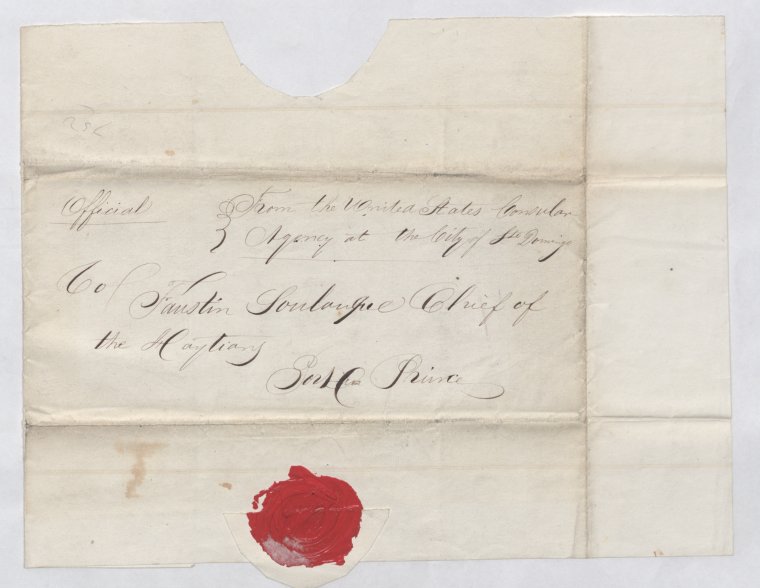 Official
From the United States Consular
Agency at the City of Sto Domingo
To
Faustin Soulouque Chief of
the Haytians
Port au Prince